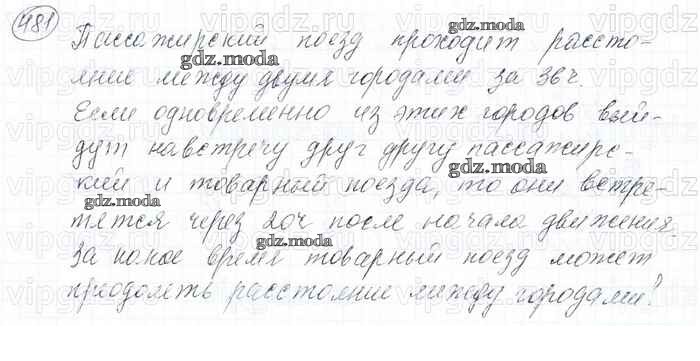 481
Пассажирский поезд проходит рассто-
яние между двумя городами за 36ч.
Если одновременно из этих городов вый-
дут навстречу друг другу пассажирс-
кий и товарный поезда, то они встре-
тятся через 20ч после начала движения.
За какое время товарный поезд может
преодолеть расстояние между городами?
gdz.moda
gdz.moda
gdz.moda
gdz.moda
gdz.moda
vipgdz